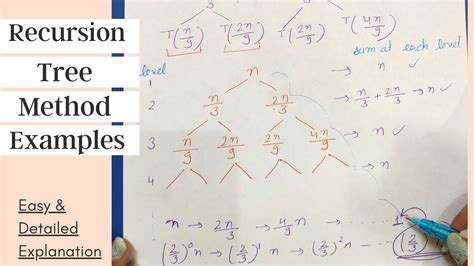 Recursion
Tree
Method
Examples
Easy &
Detailed
Explanation
3 3
T(n/9) T(2n/9) T(2n/9) T(4n/9)
sum at each level
level
1 n → n ✓
2 n/3 2n/3 → n/3 + 2n/3 → n ✓
3 n/9 2n/9 2n/9 4n/9 → n ✓
4 → n
n → 2n/3 → 4/9 n → 1
(2/3)^0 n → (2/3)^1 n → (2/3)^2 n → (2/3)